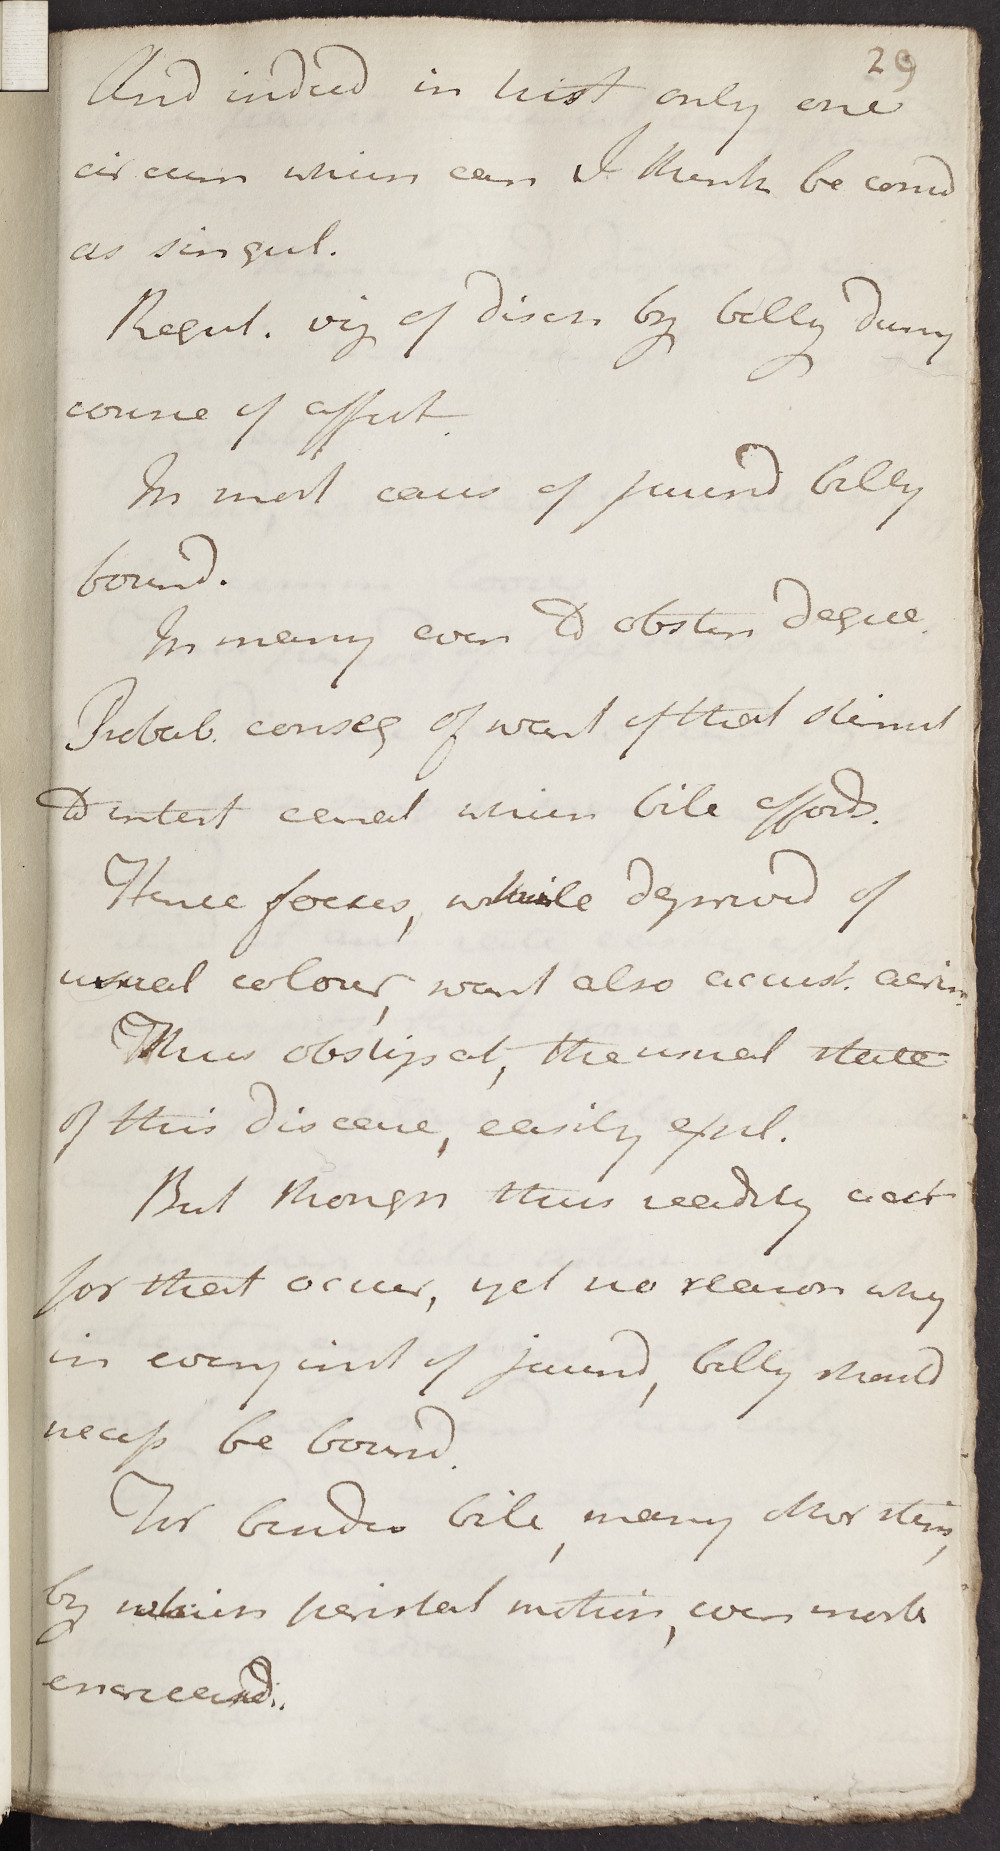 29
And indeed in hist only one
circum which can I think be consid
as singul.
Regul. viz of disch by belly during
course of affect.
In most cases of jaund belly
bound.
In many even to obstin degree.
Probab. conseq of want of that stimul
to intest canal which bile affords.
Hence foeces, while deprived of
usual colour, want also accust. acrim.
Thus obstipat, the usual state
of this disease, easily expl.
But though thus readily acct
for that occur, yet no reason why
in every inst of jaund, belly should
necess be bound.
For besides bile, many other stim,
by which peristal motion, even morb
encreased.